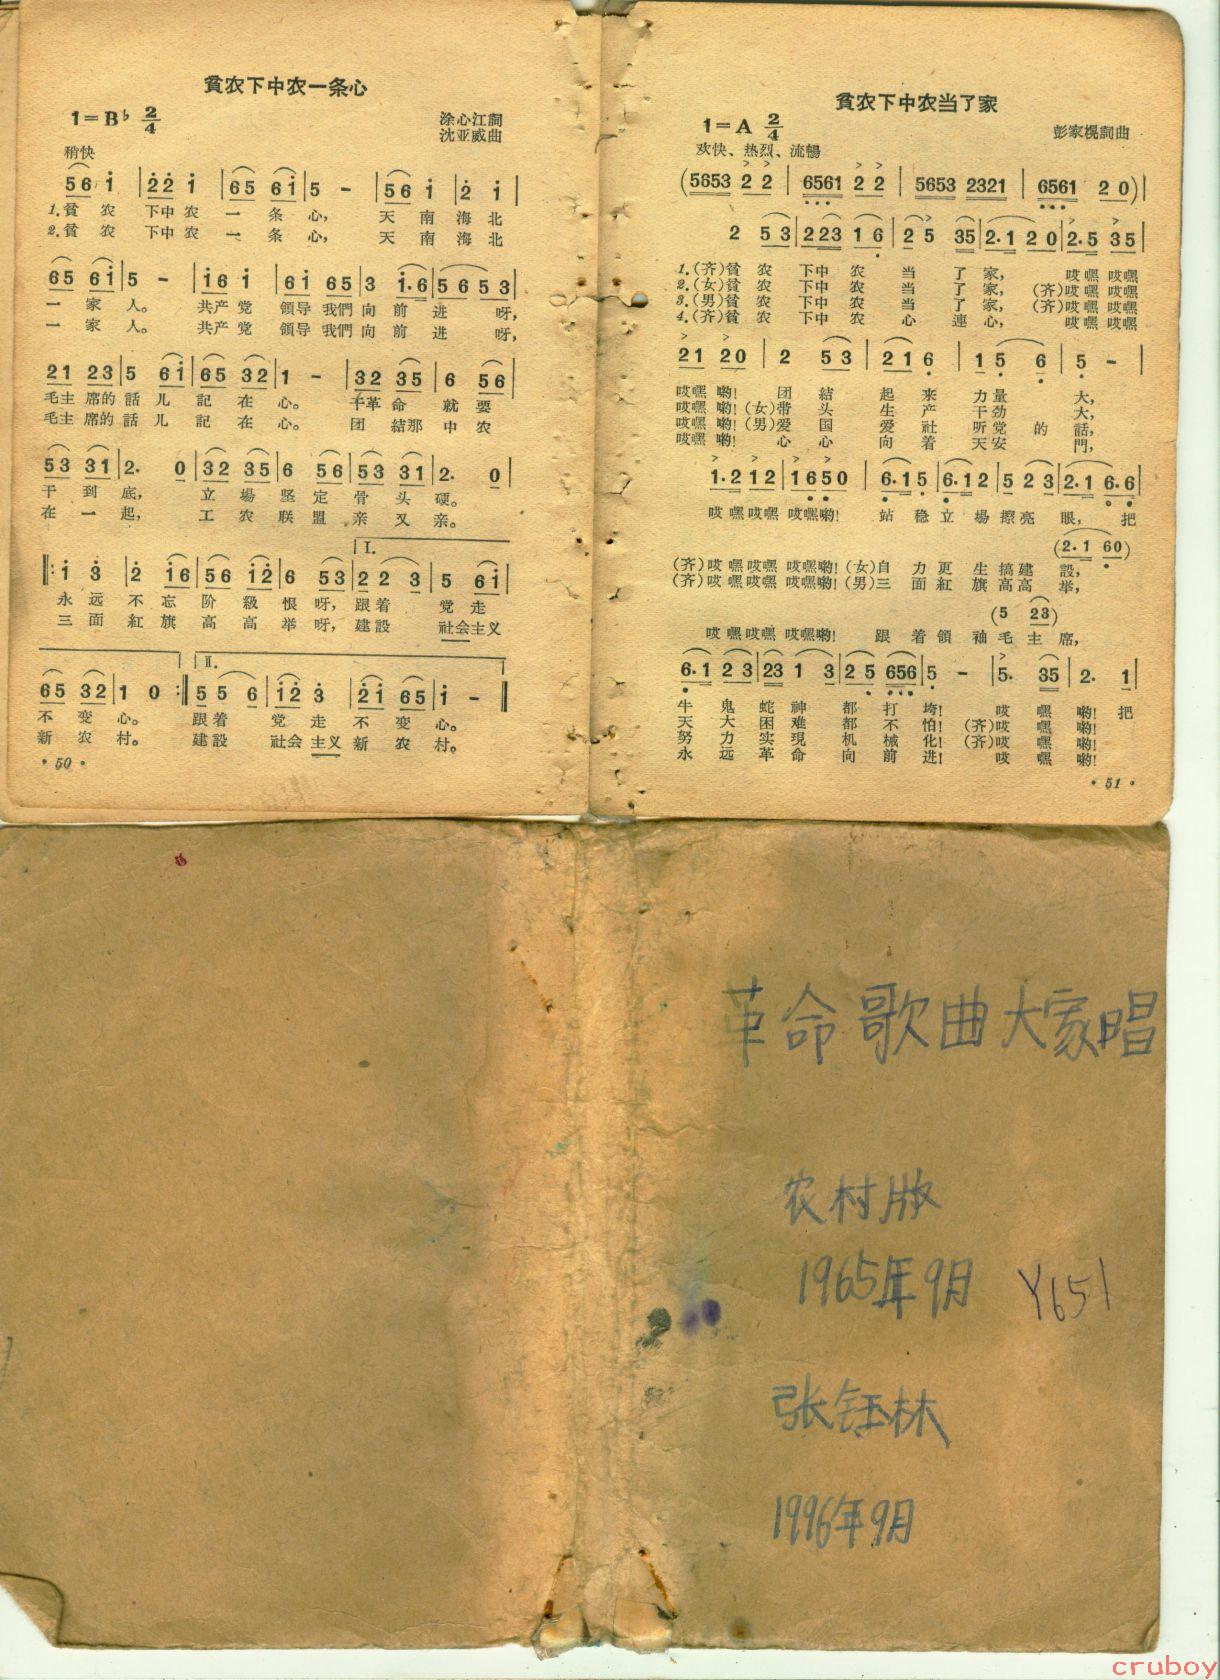 貧农下中农一条心
1=B♭ 2/4
涂心江詞
沈亚威曲
稍快
56 i | 22 i | 65 6i | 5 - | 56 i | 2 i |
1.貧 农 下中 农 一 条 心, 天 南 海 北
2.貧 农 下中 农 一 条 心, 天 南 海 北
65 6i | 5 - | i6 i | 6i 65 | 3 i·6 | 5 6 5 3 |
一 家 人。 共产 党 領导 我們 向 前 进 呀,
一 家 人。 共产 党 領导 我們 向 前 进 呀,
21 23 | 5 6i | 65 32 | 1 - | 32 35 | 6 56 |
毛主 席的 話 儿 記 在 心。 干革 命 就 要
毛主 席的 話 儿 記 在 心。 团 結那 中 农
53 31 | 2. 0 | 32 35 | 6 56 | 53 31 | 2. 0 |
干 到 底, 立 場 坚 定 骨 头 硬。
在 一 起, 工 农 联 盟 亲 又 亲。
I.
‖: i 3 | 2 i6 | 56 i2 | 6 53 | 2 2 3 | 5 6i |
永 远 不 忘 阶 級 恨 呀, 跟着 党 走
三 面 紅 旗 高 高 举 呀, 建設 社会主义
II.
65 32 | 1 0 :‖ 5 5 6 | i2 3 | 2i 65 | i - ‖
不 变 心。 跟着 党 走 不 变 心。
新 农 村。 建設 社会 主义 新 农 村。
· 50 ·
貧农下中农当了家
1=A 2/4
彭家榥詞曲
欢快、热烈、流暢
(5653 2 2 | 6561 2 2 | 5653 2321 | 6561 2 0) |
2 5 3 | 2 23 1 6 | 2 5 35 | 2·1 2 0 | 2·5 35 |
1.(齐)貧 农 下中 农 当 了 家, 哎嘿 哎嘿
2.(女)貧 农 下中 农 当 了 家, (齐)哎嘿 哎嘿
3.(男)貧 农 下中 农 当 了 家, (齐)哎嘿 哎嘿
4.(齐)貧 农 下中 农 心 連 心, 哎嘿 哎嘿
21 20 | 2 5 3 | 2 1 6 | 1 5 6 | 5 - |
哎嘿 喲! 团 結 起 来 力 量 大,
哎嘿 喲! (女)带 头 生 产 干 劲 大,
哎嘿 喲! (男)爱 国 爱 社 听党 的 話,
哎嘿 喲! 心 心 向 着 天安 門,
1·2 1 2 | 1 6 5 0 | 6·1 5 | 6·1 2 | 5 2 3 | 2·1 6·6 |
哎 嘿哎嘿 哎嘿喲! 站 稳 立 場 擦亮 眼, 把
(2·1 60)
(齐)哎 嘿哎嘿 哎嘿喲! (女)自 力 更 生 搞建 設,
(齐)哎 嘿哎嘿 哎嘿喲! (男)三 面 紅 旗 高高 举,
(5 23)
哎 嘿哎嘿 哎嘿喲! 跟 着 領 袖 毛 主 席,
6·1 2 3 | 23 1 3 | 2 5 656 | 5 - | 5. 35 | 2. 1 |
牛 鬼 蛇 神 都 打 垮! 哎 嘿 喲! 把
天 大 困 难 都 不 怕! (齐)哎 嘿 喲!
努 力 实 現 机 械 化! (齐)哎 嘿 喲!
永 远 革 命 向 前 进! 哎 嘿 喲!
· 51 ·
革命歌曲大家唱
农村版
1965年9月 Y651
张钰林
1996年9月
cruboy